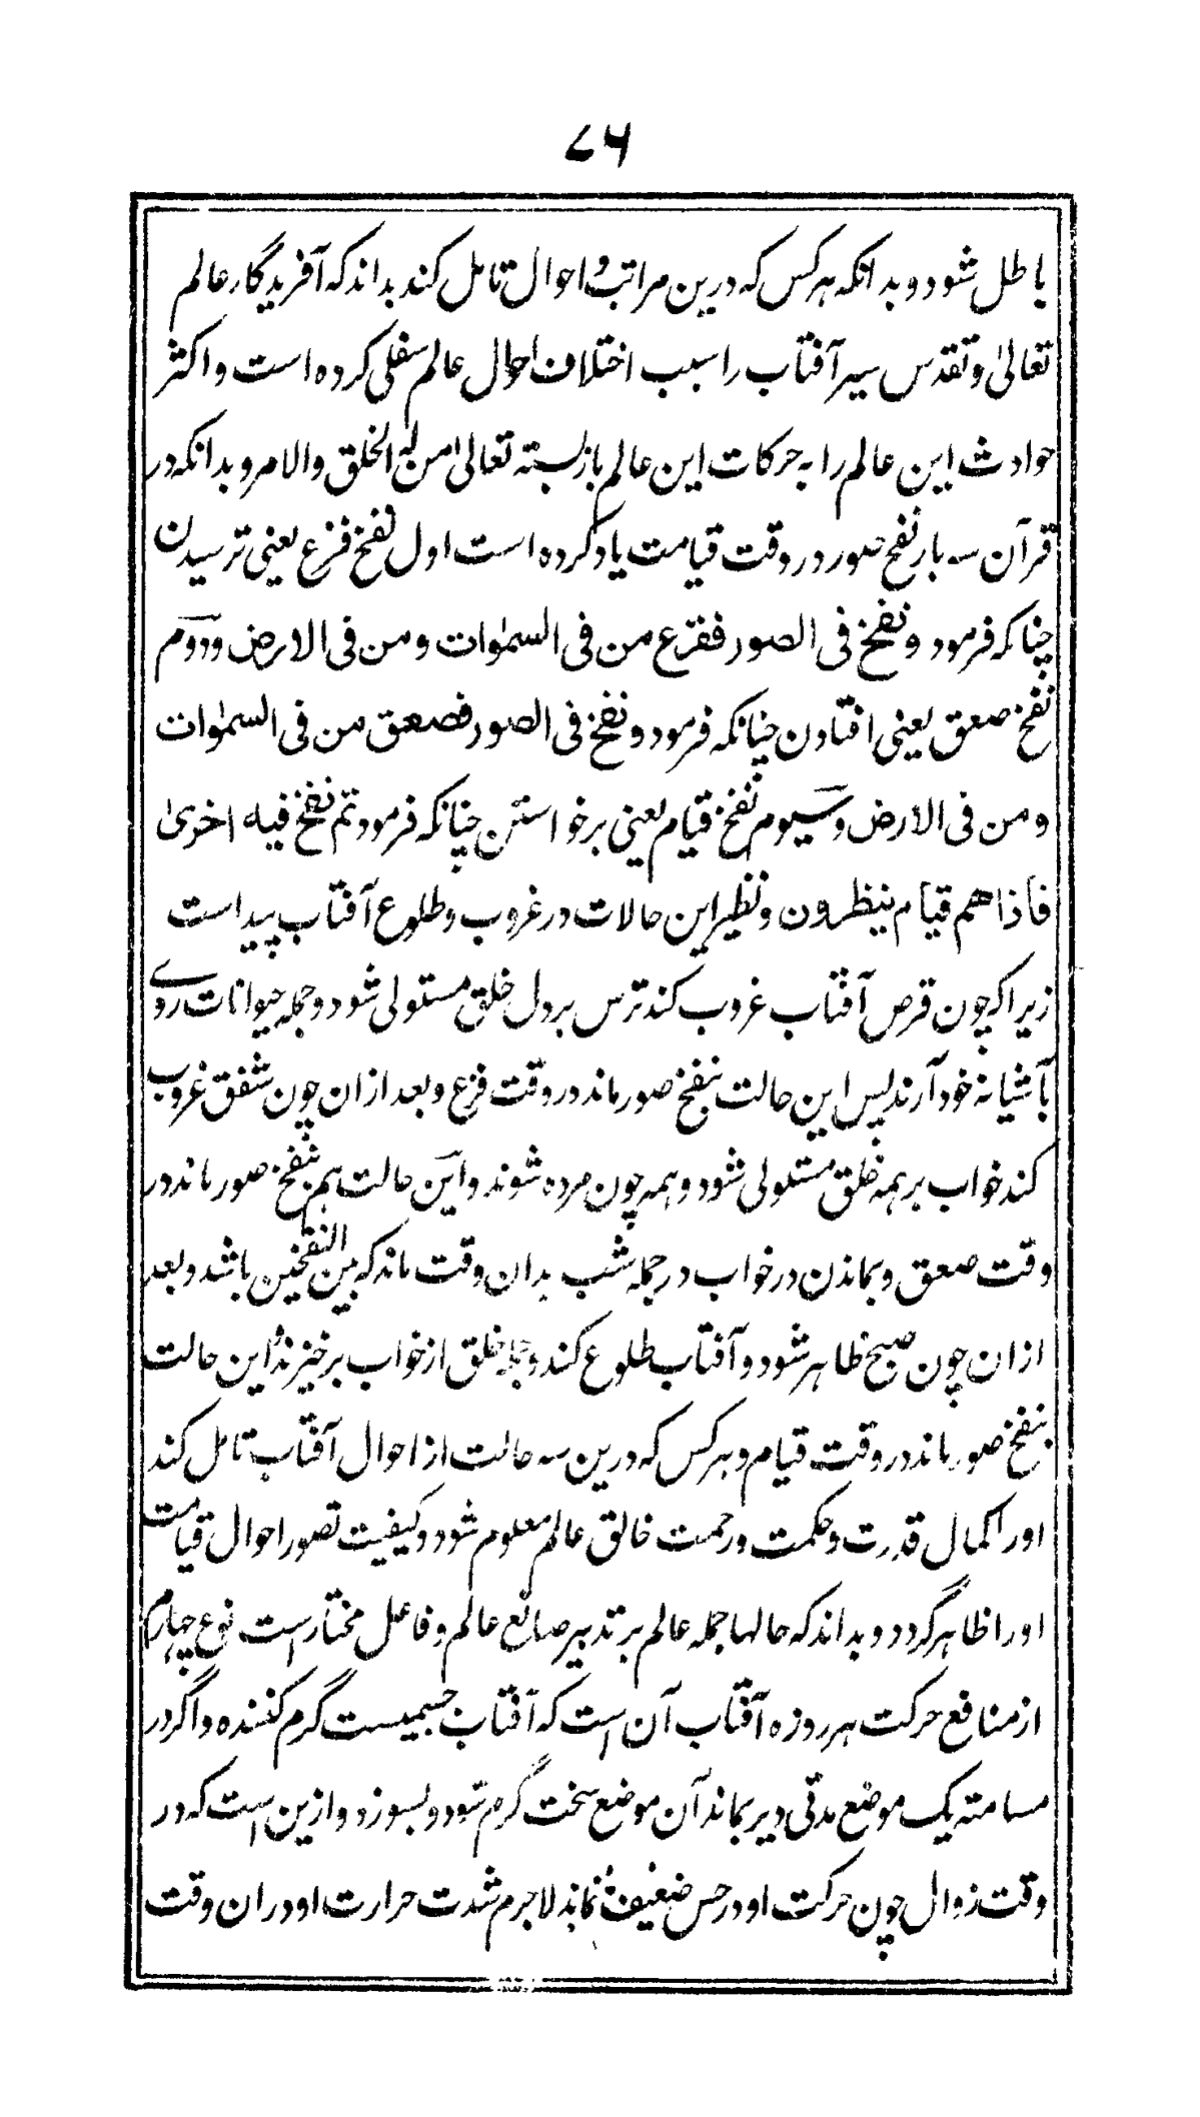 ۷۶
باطل شود و بدانکه هرکس که درین مراتب و احوال تامل کند بداند که آفریدگار عالم
تعالیٰ و تقدس سیر آفتاب را سبب اختلاف احوال عالم سفلی کرده است و اکثر
حوادث این عالم را به حرکات این عالم بازبسته تعالیٰ من له الخلق والامر و بدانکه در
قرآن سه بار نفخ صور در وقت قیامت یاد کرده است اول نفخ فزع یعنی ترسیدن
چنانکه فرمود و نفخ فی الصور ففزع من فی السمٰوات و من فی الارض و دوم
نفخ صعق یعنی افتادن چنانکه فرمود و نفخ فی الصور فصعق من فی السمٰوات
و من فی الارض و سیوم نفخ قیام یعنی برخواستن چنانکه فرمود ثم نفخ فیه اخریٰ
فاذا هم قیام ینظرون و نظیر این حالات در غروب و طلوع آفتاب پیداست
زیرا که چون قرص آفتاب غروب کند ترس بر دل خلق مستولی شود و جمله حیوانات روے
بآشیانه خود آرند پس این حالت بنفخ صور ماند در وقت فزع و بعد ازان چون شفق غروب
کند خواب بر همه خلق مستولی شود و همه چون مرده شوند و این حالت هم بنفخ صور ماند در
وقت صعق و بماندن در خواب در جمله شب بدان وقت ماند که بین النفخین باشد و بعد
ازان چون صبح ظاهر شود و آفتاب طلوع کند و جمله خلق از خواب برخیزند این حالت
بنفخ صور ماند در وقت قیام و هرکس که درین سه حالت از احوال آفتاب تامل کند
اورا کمال قدرت و حکمت و رحمت خالق عالم معلوم شود و کیفیت تصور احوال قیامت
اورا ظاهر گردد و بداند که حالها جمله عالم بر تدبیر صانع عالم و فاعل مختار است نوع چهارم
از منافع حرکت هر روزه آفتاب آن است که آفتاب جسمیست گرم کننده و اگر در
مسامته یک موضع مدتی دیر بماند آن موضع سخت گرم شود و بسوزد و ازین است که در
وقت زوال چون حرکت او در حس ضعیف نماید لاجرم شدت حرارت او دران وقت